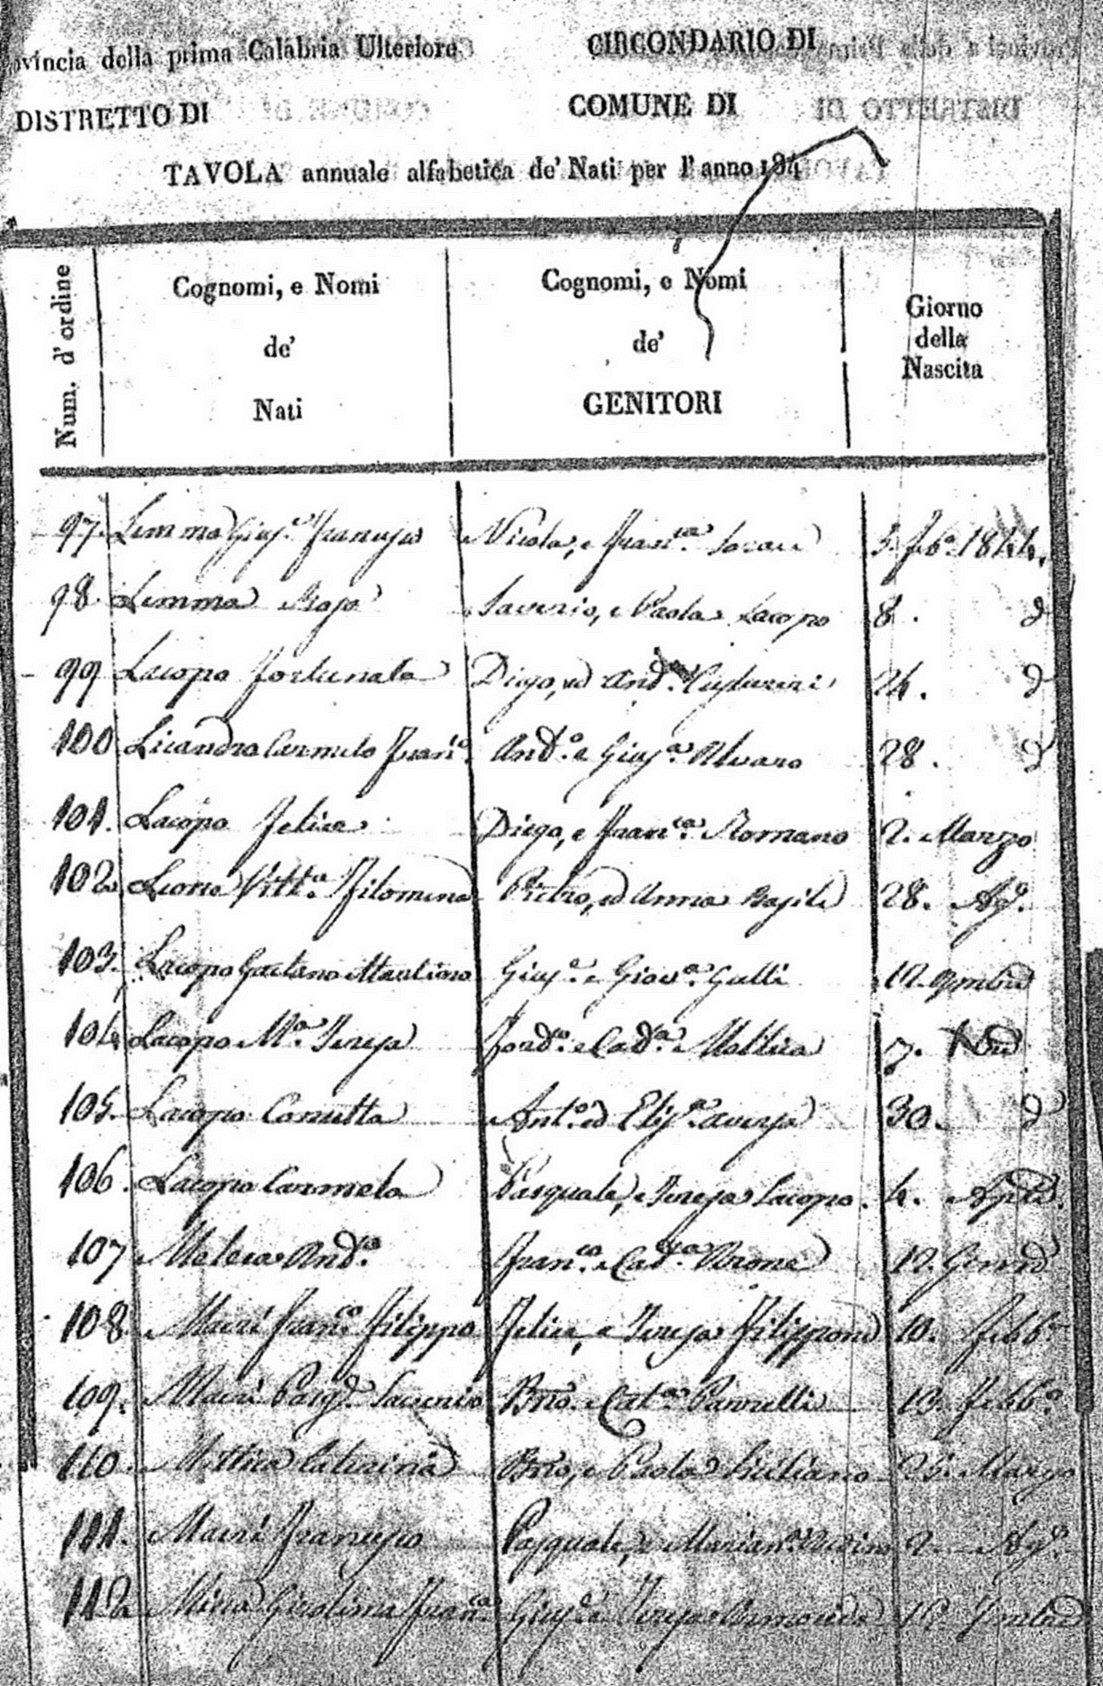 ovincia della prima Calabria Ulteriore
CIRCONDARIO DI
DISTRETTO DI
COMUNE DI
TAVOLA annuale alfabetica de' Nati per l' anno 184
Num. d' ordine
Cognomi, e Nomi
de'
Nati
Cognomi, e Nomi
de'
GENITORI
Giorno
della
Nascita
97. Lemma Giusᵉ Francesco Nicola, e Franᶜᵃ 3. Febº 1844.
98. Lemma Saverio, e Paola Lacopo 8. d
99 Lacopo Fortunata Diego, ed Andª 24. d
100. Licandro Carmelo Franᶜº Andº e Giusª Alvaro 28. d
101. Lacopo Felice Diego, e Franᶜᵃ Romano 2. Marzo
102. Leone Vittª Filomena Pietro, ed Anna Basile 28. Agº
103. Lacopo Gaetano Giusᵉ e Giovª Galli 12. 9mbre
104. Lacopo Mª Teresa Ferdº e Cadª Mollica 7.
105. Lacopo Concetta Antº ed Elisª 30. d
106. Lacopo Carmela Pasquale, e Teresa Lacopo. 4. Aprile
107 Andᶜª Franᶜº e Catª 12. Gennº
108. Macrì Franᶜº Filippo Felice, e Teresa Filippone 10. Febbº
109. Macrì Pasqˡᵉ Saverio Brnº e Catª 13. Febbº
110. Mollica Caterina Brnº, e Paola Siciliano Marzo
111. Macrì Francesco Pasquale, e Marianª 2. Agº
112. Girolima Franᶜª Giusᵉ e Teresa